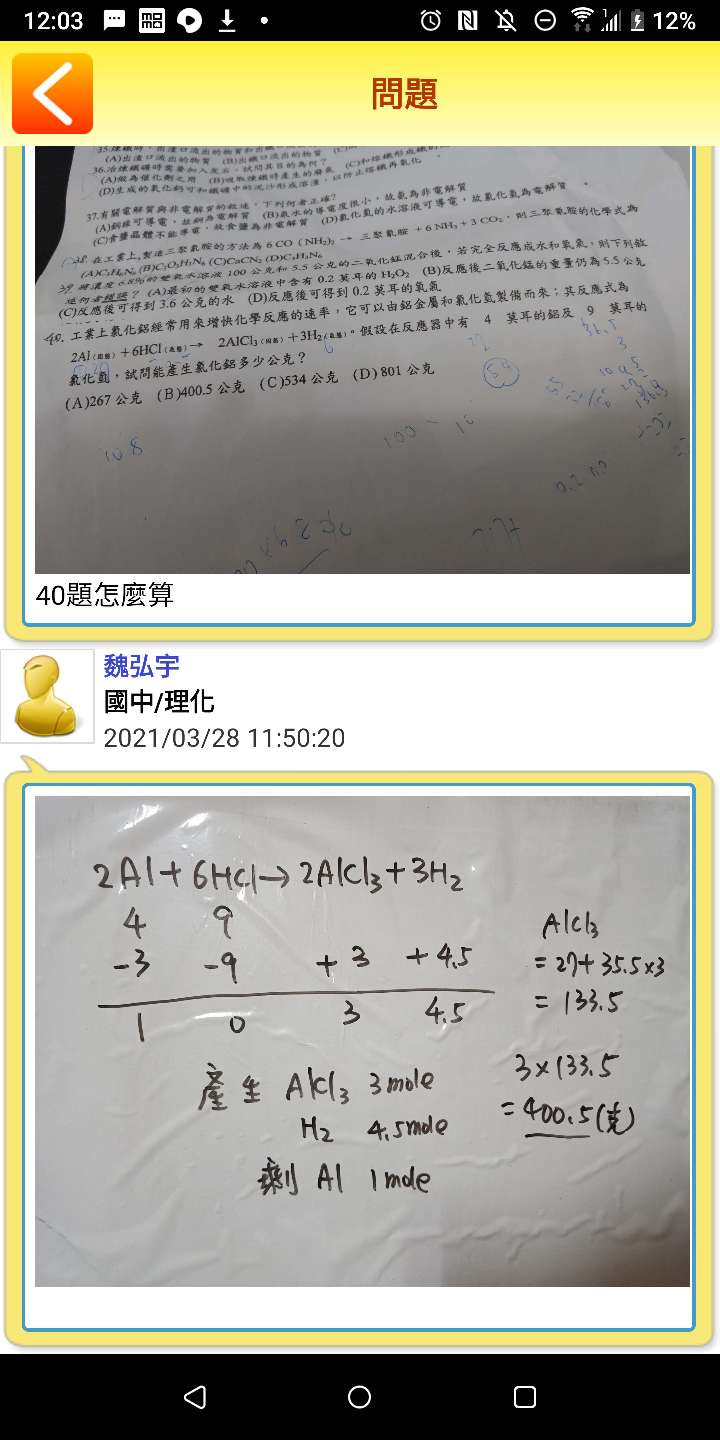 12:03
12%
問題
(A)出渣口流出的物質 (B)出鐵口流出的物質
36.冶煉鐵礦時需要加入灰石，試問其目的為何？
(A)做為催化劑之用 (B)吸取煉鐵時產生的廢氣 (C)和熔鐵形成
(D)生成的氧化鈣可和鐵礦中的泥沙形成溶渣，以防止熔鐵再氧化。
37.有關電解質與非電解質的敘述，下列何者正確？
(A)銅線可導電，故銅為電解質 (B)氨水的導電度很小，故氨為非電解質
(C)食鹽晶體不能導電，故食鹽為非電解質 (D)氯化氫的水溶液可導電，故氯化氫為電解質。
38. 在工業上,製造三聚氰胺的方法為 6 CO (NH₂)₂ → 三聚氰胺 + 6 NH₃ + 3 CO₂，則三聚氰胺的化學式為
(A)C₃H₆N₆ (B)C₃O₃H₃N₆ (C)CaCN₂ (D)C₃H₃N₆
39 將濃度 6.8%的雙氧水溶液 100 公克和 5.5 公克的二氧化錳混合後，若完全反應成水和氧氣，則下列敘
述何者錯誤？ (A)最初的雙氧水溶液中含有 0.2 莫耳的 H₂O₂ (B)反應後二氧化錳的重量仍為 5.5 公克
(C)反應後可得到 3.6 公克的水 (D)反應後可得到 0.2 莫耳的氧氣
40. 工業上氯化鋁經常用來增快化學反應的速率，它可以由鋁金屬和氯化氫製備而來；其反應式為
2Al(固態)+6HCl(氣態)→ 2AlCl₃(固態)+3H₂(氣態)。假設在反應器中有 4 莫耳的鋁及 9 莫耳的
氯化氫，試問能產生氯化鋁多少公克？
(A)267 公克 (B)400.5 公克 (C)534 公克 (D)801 公克
10.8
100
40題怎麼算
魏弘宇
國中/理化
2021/03/28 11:50:20
2Al+6HCl→2AlCl₃+3H₂
4 9
-3 -9 +3 +4.5
1 0 3 4.5
AlCl₃
=27+35.5×3
=133.5
產生 AlCl₃ 3mole
H₂ 4.5mole
剩 Al 1mole
3×133.5
=400.5(克)